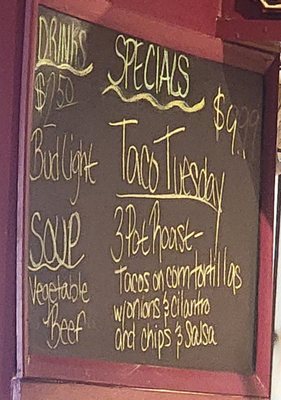 DRINKS
$1.50
Bud Light
SOUP
Vegetable
Beef
SPECIALS
$9.99
Taco Tuesday
3 Pot Roast-
Tacos on corn tortillas
w/onions & cilantro
and chips & salsa